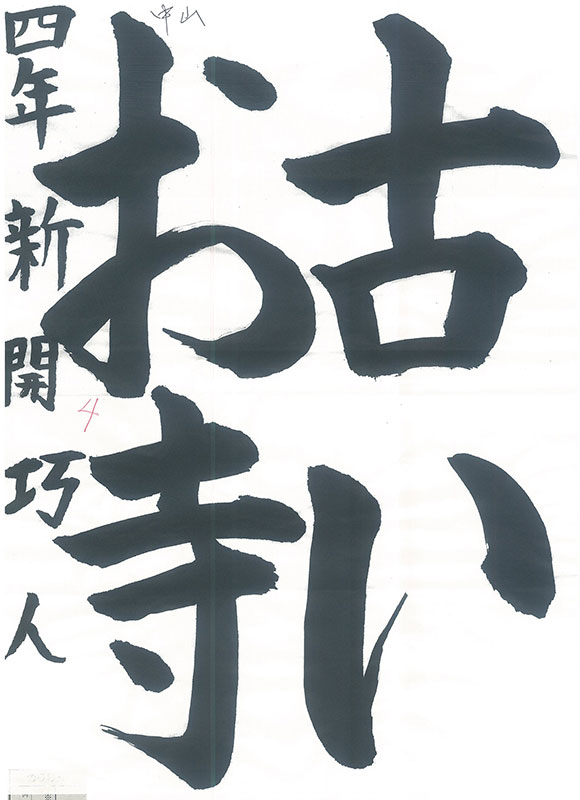 古い
お寺
四年 新開巧人
中山
4